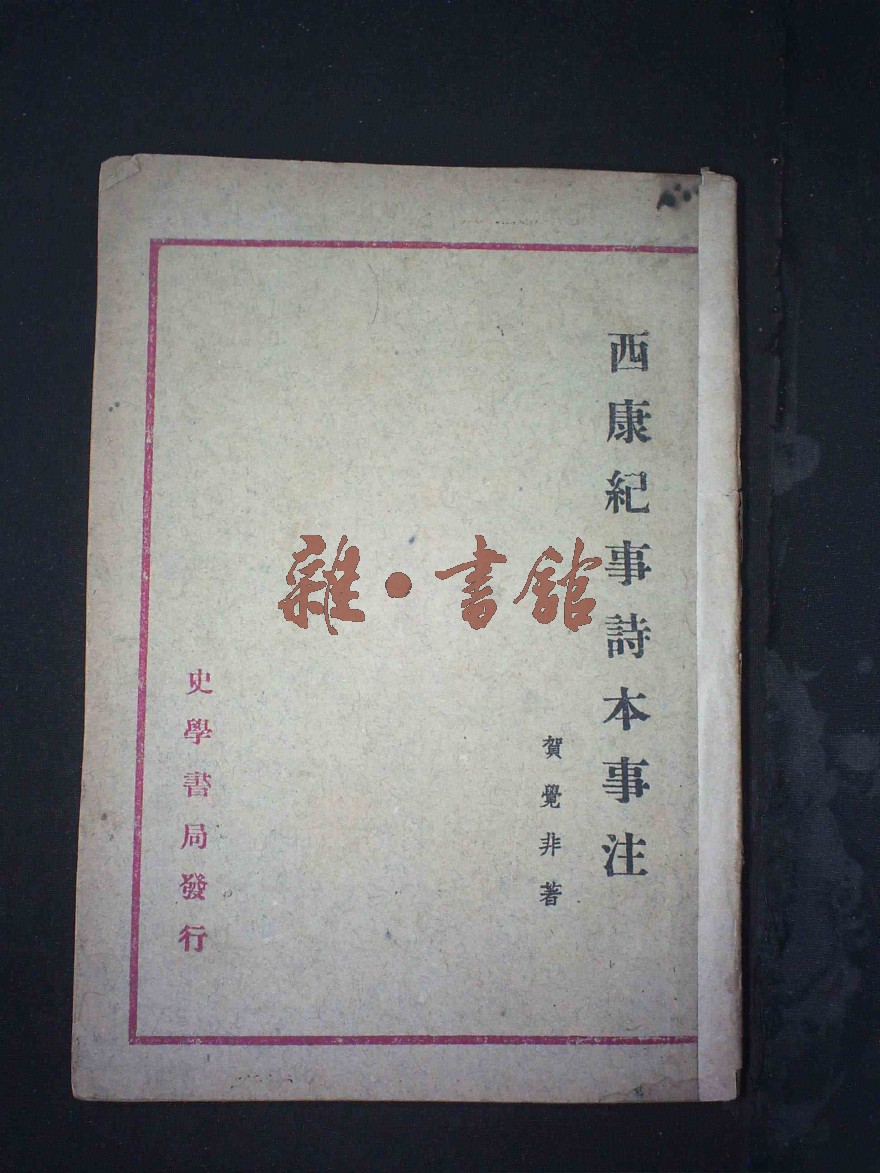 西康紀事詩本事注
賀覺非著
史學書局發行
雜·書館